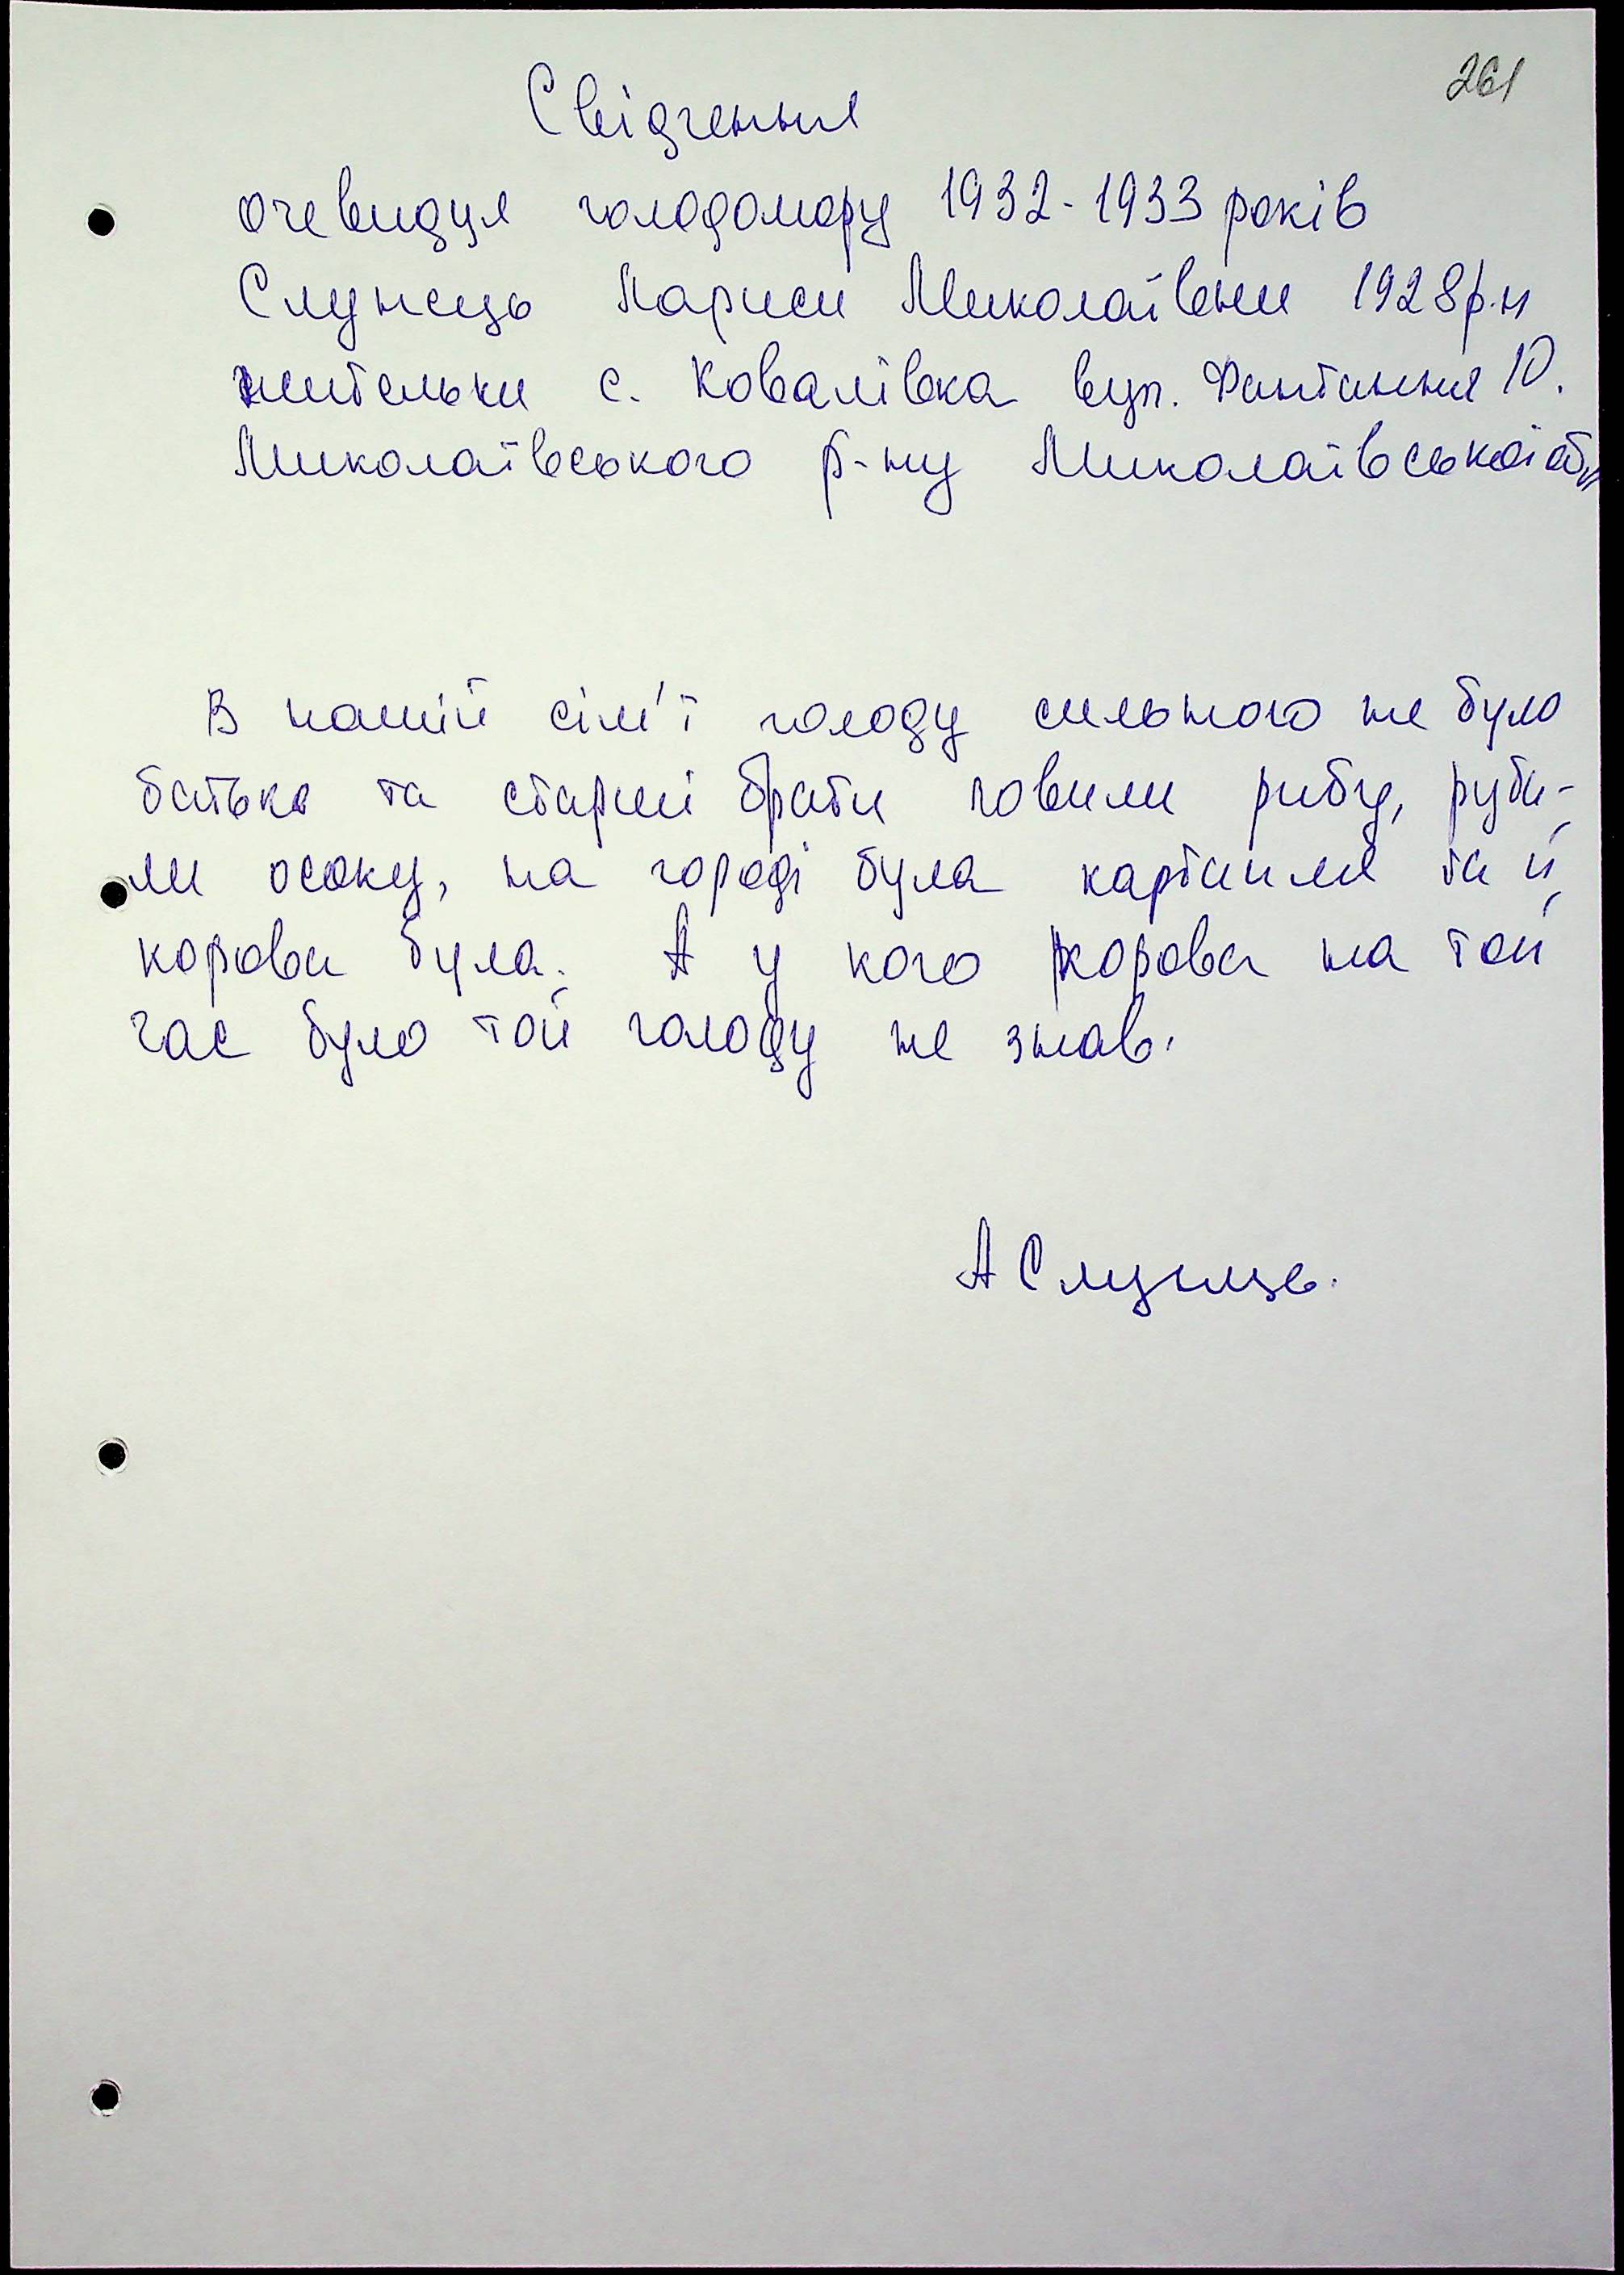 261
Свідчення
очевидця голодомору 1932-1933 років
Слунець Лариси Миколаївни 1928р.н
жительки с. Ковалівка вул. Фонтанна 10.
Миколаївського р-ну Миколаївської обл
В нашій сім'ї голоду сильного не було
батько та старші брати ловили рибу, руби-
ли осоку, на городі була картопля та й
корова була. А у кого корова на той
час було той голоду не знав.